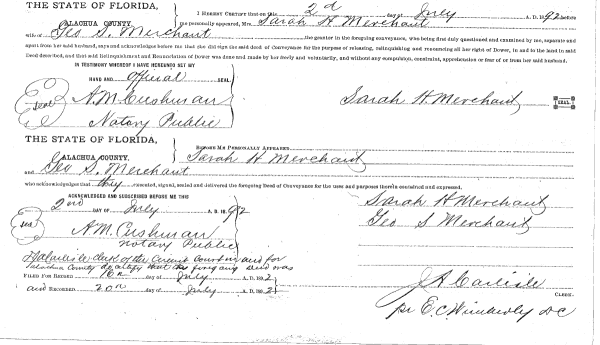 THE STATE OF FLORIDA,
ALACHUA COUNTY.
I HEREBY CERTIFY that on this 2d day of July A. D. 1892 before
me personally appeared, Mrs. Sarah H. Merchant
wife of Geo S. Merchant the grantor in the foregoing conveyance, who being first duly questioned and examined by me, separate and
apart from her said husband, says and acknowledges before me that she did sign the said deed of Conveyance for the purpose of releasing, relinquishing and renouncing all her right of Dower, in and to the land in said
Deed described, and that said Relinquishment and Renunciation of Dower was done and made by her freely and voluntarily, and without any compulsion, constraint, apprehension or fear of or from her said husband.
IN TESTIMONY WHEREOF I HAVE HEREUNTO SET MY
HAND AND official SEAL
Seal A. M. Cushman
Notary Public
Sarah H. Merchant SEAL.
THE STATE OF FLORIDA,
ALACHUA COUNTY.
BEFORE ME PERSONALLY APPEARED Sarah H Merchant
and Geo S. Merchant
who acknowledges that they executed, signed, sealed and delivered the foregoing Deed of Conveyance for the uses and purposes therein contained and expressed.
ACKNOWLEDGED AND SUBSCRIBED BEFORE ME THIS
2nd DAY OF July A. D. 1892
Seal A. M. Cushman
Notary Public
Sarah H Merchant
Geo S Merchant
J A Carlisle clerk of the Circuit Court in and for
Alachua County do certify that this foregoing Deed was
FILED FOR RECORD 16th day of July A. D. 1892
and RECORDED 20th day of July A. D. 1892
J A Carlisle
CLERK.
pr E. C. Wimberly DC